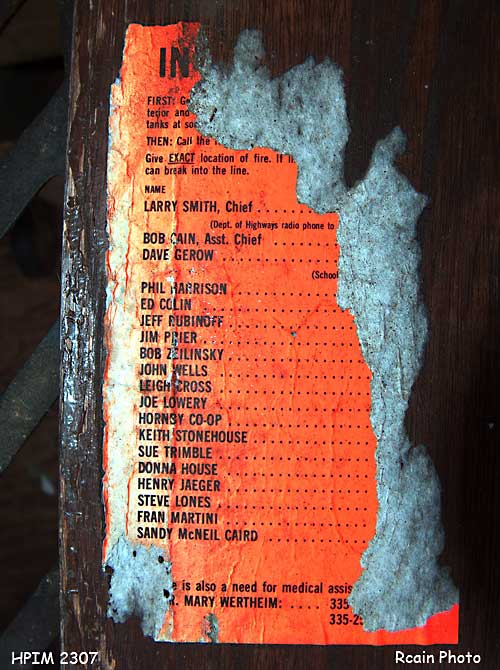 IN
FIRST: G
terior and
tanks at so
THEN: Call the
Give EXACT location of fire. If
can break into the line.
NAME
LARRY SMITH, Chief . . . . . . . . .
(Dept. of Highways radio phone to
BOB CAIN, Asst. Chief . . . . . . . . .
DAVE GEROW . . . . . . . . . . . . .
(School
PHIL HARRISON . . . . . . . . . . . .
ED COLIN . . . . . . . . . . . . . . .
JEFF RUBINOFF . . . . . . . . . . . .
JIM PRIER . . . . . . . . . . . . . . .
BOB ZEILINSKY . . . . . . . . . . . .
JOHN WELLS . . . . . . . . . . . . .
LEIGH CROSS . . . . . . . . . . . . .
JOE LOWERY . . . . . . . . . . . . .
HORNBY CO-OP . . . . . . . . . . . .
KEITH STONEHOUSE . . . . . . . . .
SUE TRIMBLE . . . . . . . . . . . . .
DONNA HOUSE . . . . . . . . . . . .
HENRY JAEGER . . . . . . . . . . . .
STEVE LONES . . . . . . . . . . . . .
FRAN MARTINI . . . . . . . . . . . .
SANDY McNEIL CAIRD . . . . . . . .
e is also a need for medical assis
MARY WERTHEIM: . . . . 335
335-2
HPIM 2307
Rcain Photo